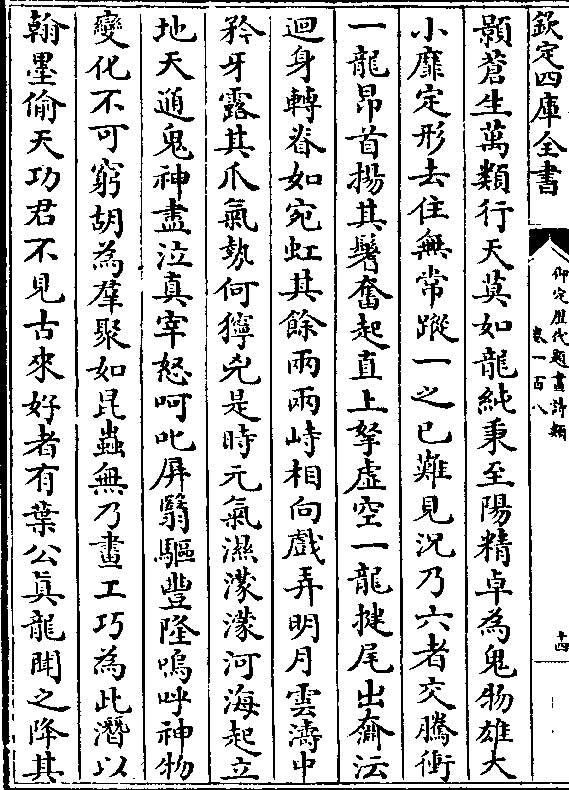 欽定四庫全書
御定歷代題畫詩類
卷一百八
十四
顥蒼生萬類行天莫如龍純秉至陽精卓為鬼物雄大
小靡定形去住無常蹤一之已難見況乃六者交騰衝
一龍昂首揚其鬐奮起直上拏虛空一龍揵尾出奫沄
迴身轉脊如宛虹其餘兩兩峙相向戲弄明月雲濤中
矜牙露其爪氣勢何獰兇是時元氣濕濛濛河海起立
地天通鬼神盡泣真宰怒呵叱屏翳驅豐隆嗚呼神物
變化不可窮胡為羣聚如昆蟲無乃畫工巧為此潛以
翰墨偷天功君不見古來好者有葉公真龍聞之降其